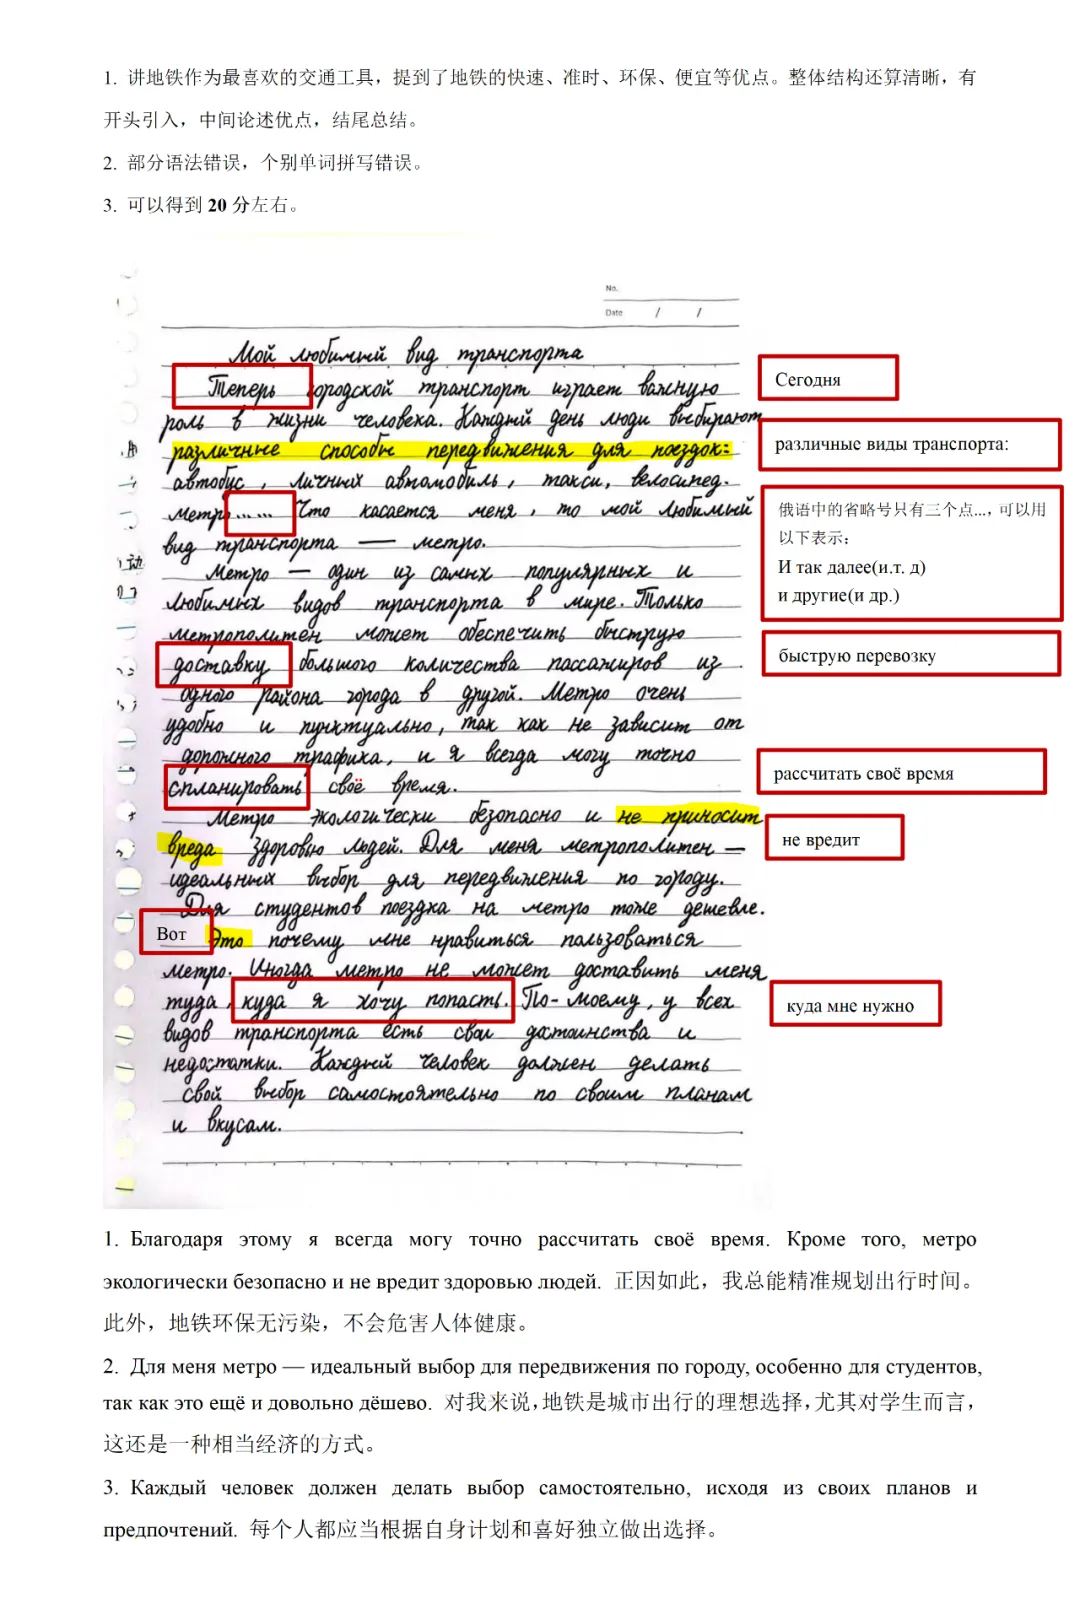 1. 讲地铁作为最喜欢的交通工具，提到了地铁的快速、准时、环保、便宜等优点。整体结构还算清晰，有
开头引入，中间论述优点，结尾总结。
2. 部分语法错误，个别单词拼写错误。
3. 可以得到 20 分左右。
No.
Date / /
Мой любимый вид транспорта
Теперь городской транспорт играет важную
Сегодня
роль в жизни человека. Каждый день люди выбирают
различные способы передвижения для поездок:
различные виды транспорта:
автобус, личных автомобиль, такси, велосипед.
метро...... Что касается меня, то мой любимый
вид транспорта — метро.
俄语中的省略号只有三个点...，可以用
以下表示：
И так далее(и.т. д)
и другие(и др.)
Метро — один из самых популярных и
любимых видов транспорта в мире. Только
метрополитен может обеспечить быструю
доставку большого количества пассажиров из
быструю перевозку
одного района города в другой. Метро очень
удобно и пунктуально, так как не зависит от
дорожного трафика, и я всегда могу точно
спланировать своё время.
рассчитать своё время
Метро экологически безопасно и не приносит
вреда здоровью людей. Для меня метрополитен —
не вредит
идеальных выбор для передвижения по городу.
Для студентов поездка на метро тоже дешевле.
Вот Это почему мне нравиться пользоваться
метро. Иногда метро не может доставить меня
туда, куда я хочу попасть. По-моему, у всех
куда мне нужно
видов транспорта есть свои достоинства и
недостатки. Каждый человек должен делать
свой выбор самостоятельно по своим планам
и вкусам.
1. Благодаря этому я всегда могу точно рассчитать своё время. Кроме того, метро
экологически безопасно и не вредит здоровью людей. 正因如此，我总能精准规划出行时间。
此外，地铁环保无污染，不会危害人体健康。
2. Для меня метро — идеальный выбор для передвижения по городу, особенно для студентов,
так как это ещё и довольно дёшево. 对我来说，地铁是城市出行的理想选择，尤其对学生而言，
这还是一种相当经济的方式。
3. Каждый человек должен делать выбор самостоятельно, исходя из своих планов и
предпочтений. 每个人都应当根据自身计划和喜好独立做出选择。